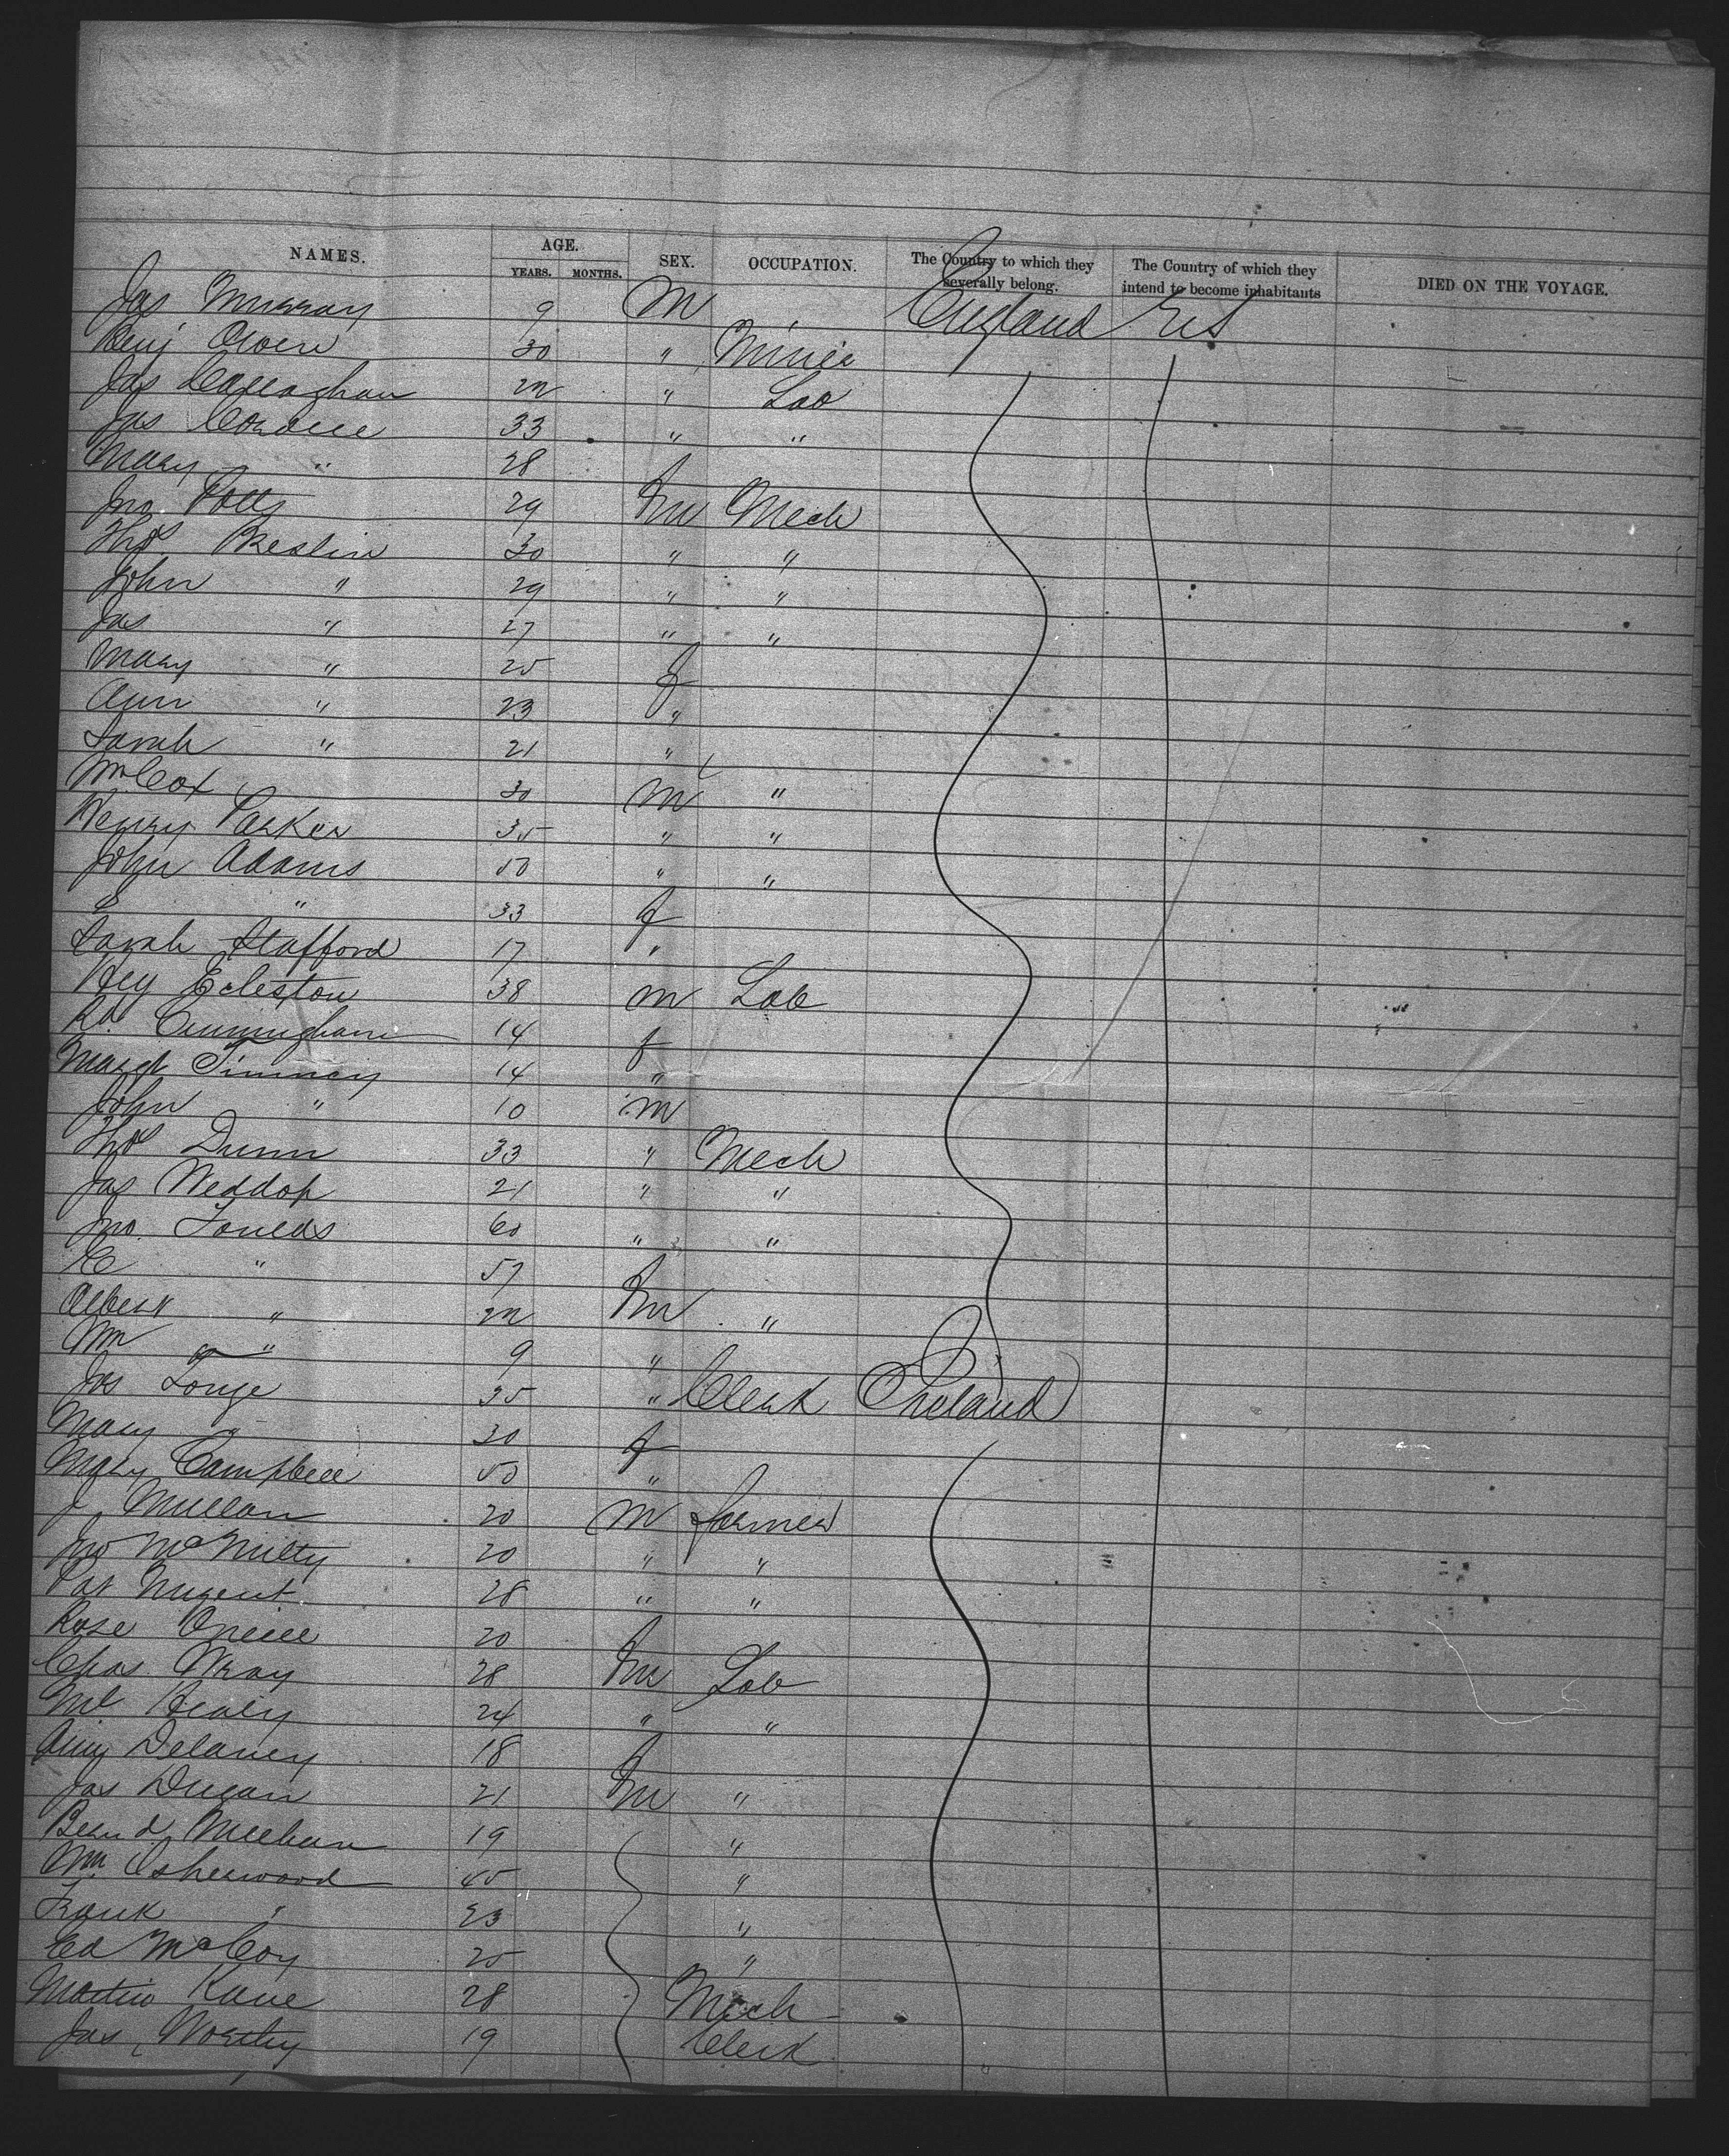 NAMES. AGE. SEX. OCCUPATION. The Country to which they severally belong. The Country of which they intend to become inhabitants DIED ON THE VOYAGE.
YEARS. MONTHS.
Jas Murray 9 M England US
Benj Owen 30 " Miner
Jas Callaghan 22 " Lab
Jas 33 " "
Mary " 28
Jno Potts 29 m Mech
Thos Breslin 30 " "
John " 29 " "
Jas " 27 " "
Mary " 25 f
Ann " 23 "
Sarah " 21 "
Wm Cox 30 M "
Henry Parker 35 " "
John Adams 50 " "
E " 33 f
Sarah Stafford 17 "
Hey Ecleston 38 m Lab
Cunningham 14 f
Margt Timney 14 "
John " 10 m
Thos Dunn 33 " Mech
Jas Weddop 21 " "
Jno. Foulds 60 " "
E " 57
Albert " 22 m "
Wm " 9 "
Jas Longe 35 " Clerk Ireland
Mary " 30 f
Mary Campbell 50 "
J Mullan 20 M farmer
Jno McNulty 20 " "
Pat Nugent 28 " "
Rose Oneill 20 f
Chas Wray 28 m Lab
Ml Healy 24 " "
Delaney 18 f
Jas Dugan 21 m "
Bernd Meehan 19 "
Wm Isherwood 45 "
Frank " 23 "
Ed McCoy 25 "
Martin Kane 28 Mech
Jas Worthy 19 Clerk